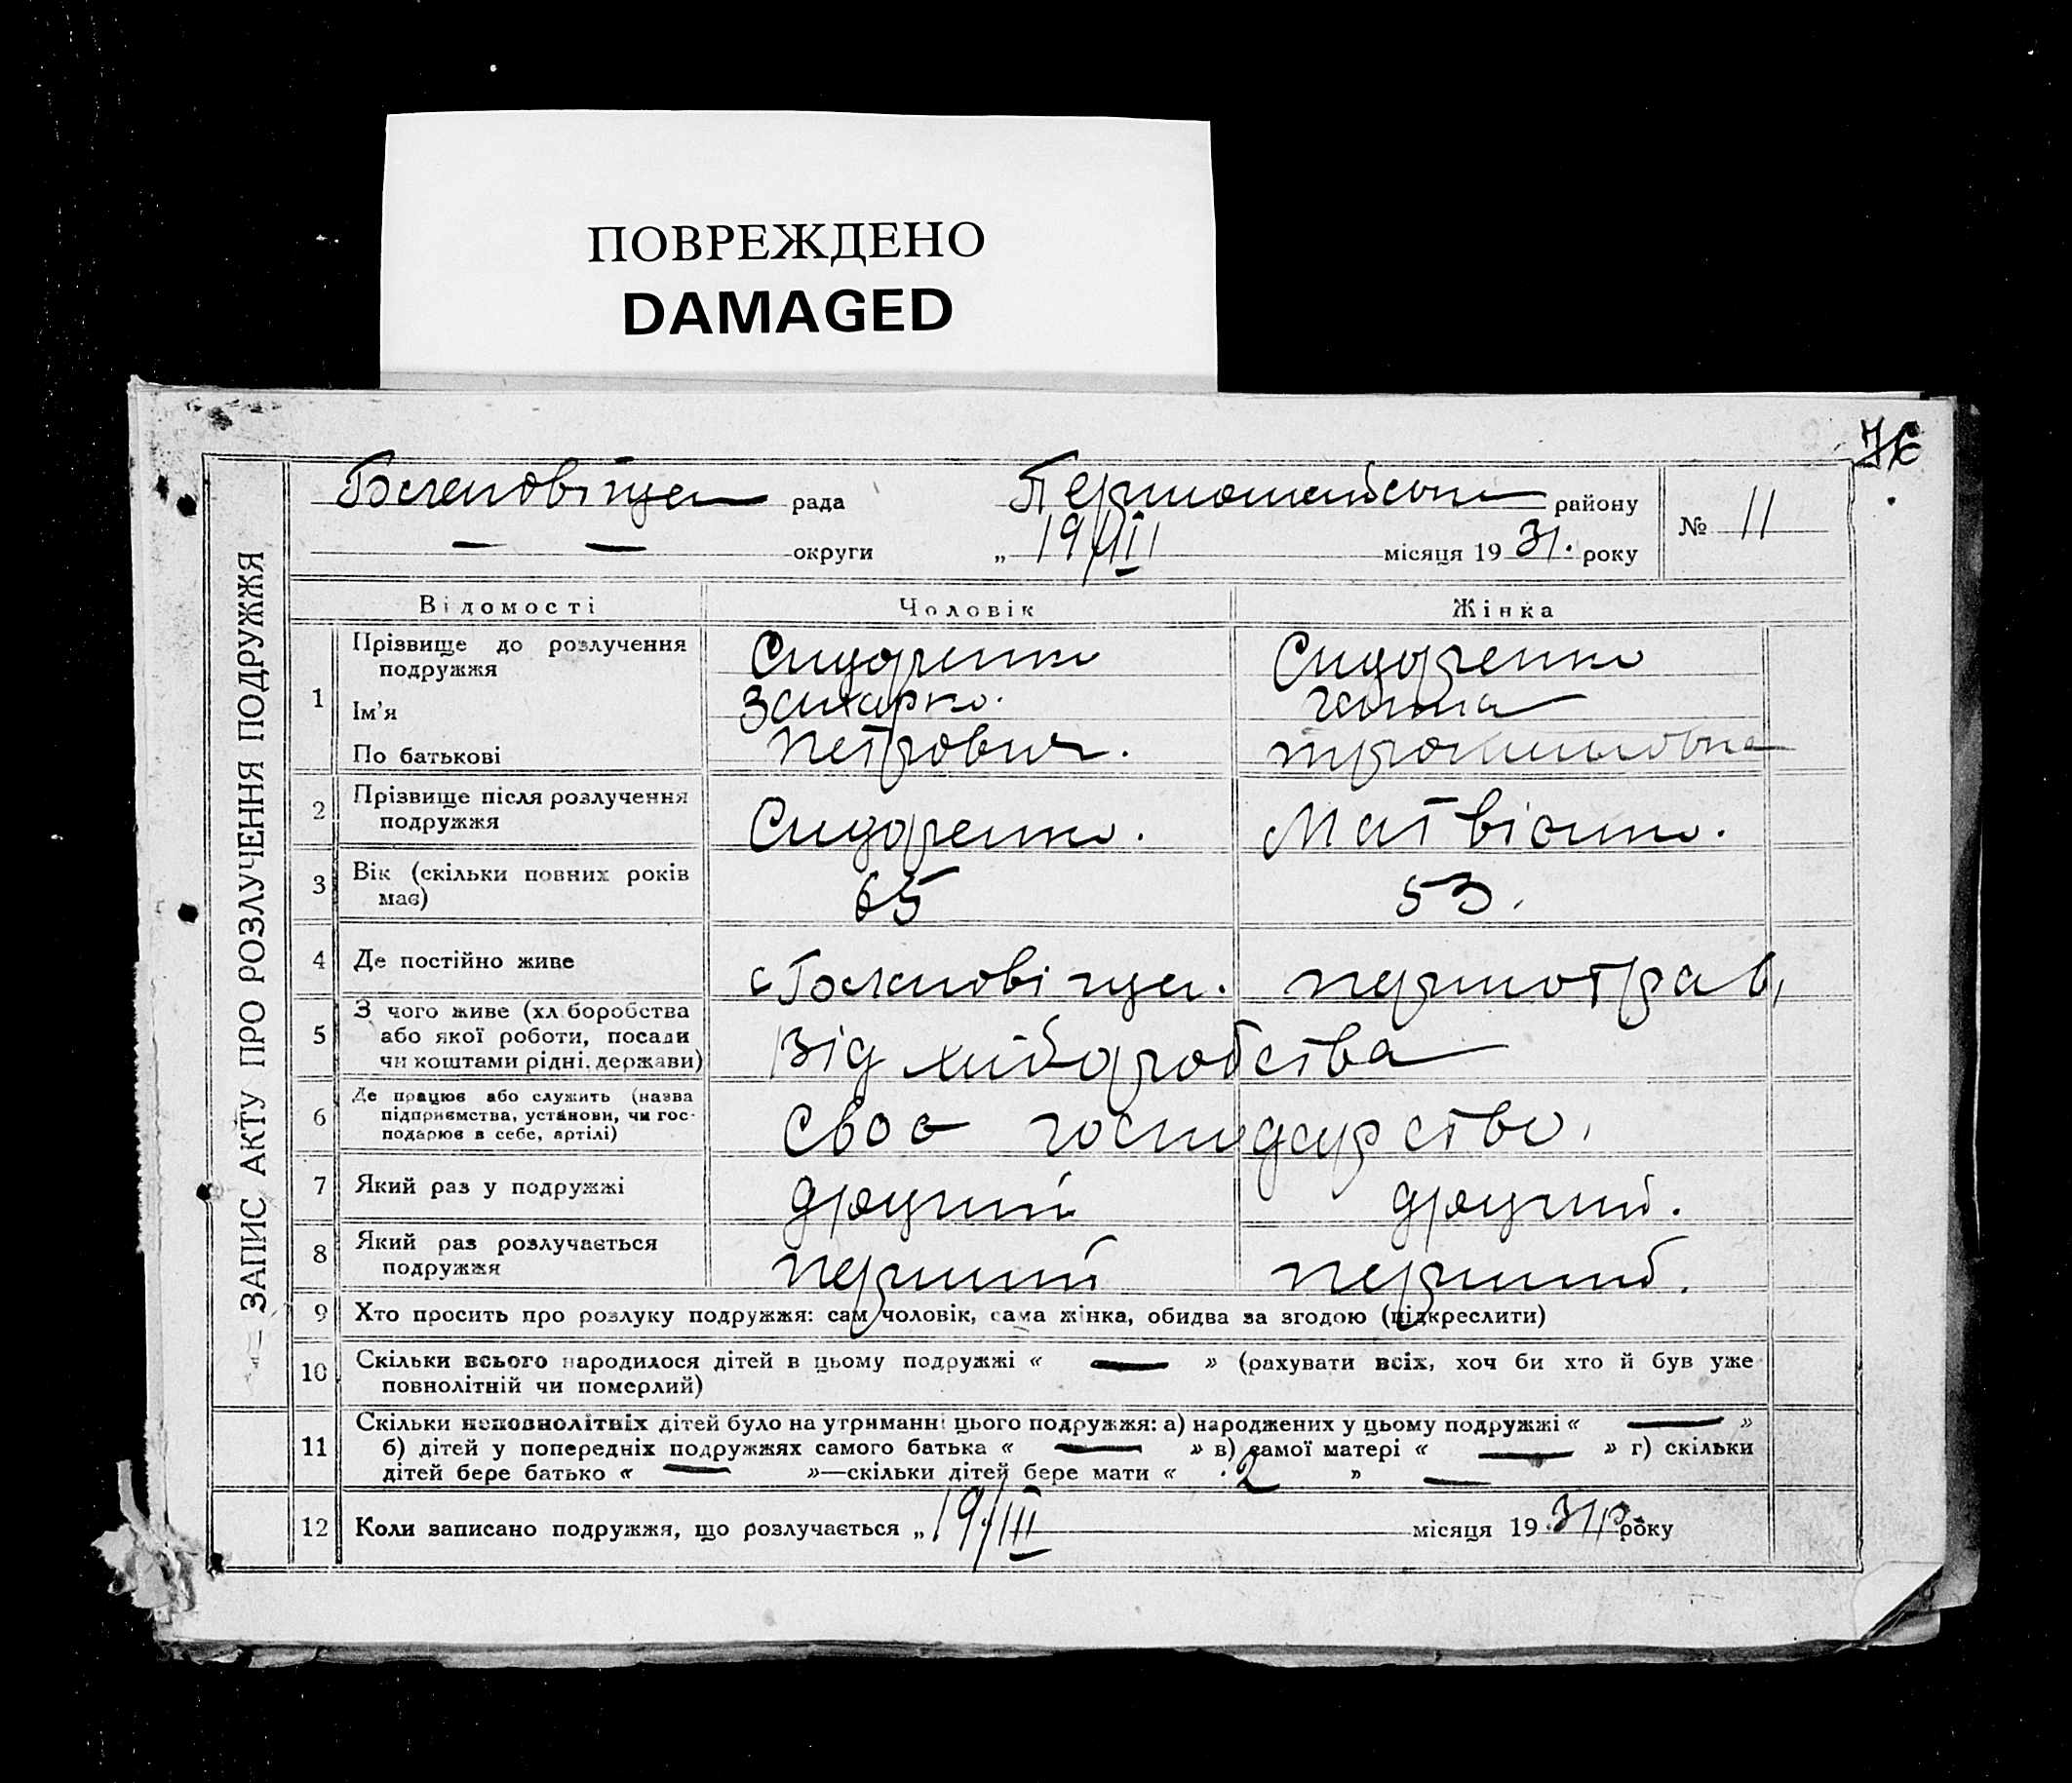 ПОВРЕЖДЕНО
DAMAGED
76
рада
району
№ 11
— — округи „ 19/III місяця 1931. року
ЗАПИС АКТУ ПРО РОЗЛУЧЕННЯ ПОДРУЖЖЯ
Відомості Чоловік Жінка
1 Прізвище до розлучення Сидоренко Сидоренко
подружжя
Ім’я Захарко. Ганна
По батькові Петрович.
2 Прізвище після розлучення Сидоренко. Матвієнко.
подружжя
3 Вік (скільки повних років 65 53.
має)
4 Де постійно живе с
5 З чого живе (хл.боробства Від хліборобства
або якої роботи, посади
чи коштами рідні. держави)
6 Де працює або служить (назва Своє господарство.
підприємства, установи, чи гос-
подарює в себе, артілі)
7 Який раз у подружжі другий другий.
8 Який раз розлучається перший перший.
подружжя
9 Хто просить про розлуку подружжя: сам чоловік, сама жінка, обидва за згодою (підкреслити)
10 Скільки всього народилося дітей в цьому подружжі « — » (рахувати всіх, хоч би хто й був уже
повнолітній чи померлий)
11 Скільки неповнолітніх дітей було на утриманні цього подружжя: а) народжених у цьому подружжі « — »
б) дітей у попередніх подружжях самого батька « — » в) самої матері « — » г) скільки
дітей бере батько « — »—скільки дітей бере мати « 2 » —
12 Коли записано подружжя, що розлучається „ 19/III місяця 1931р. року